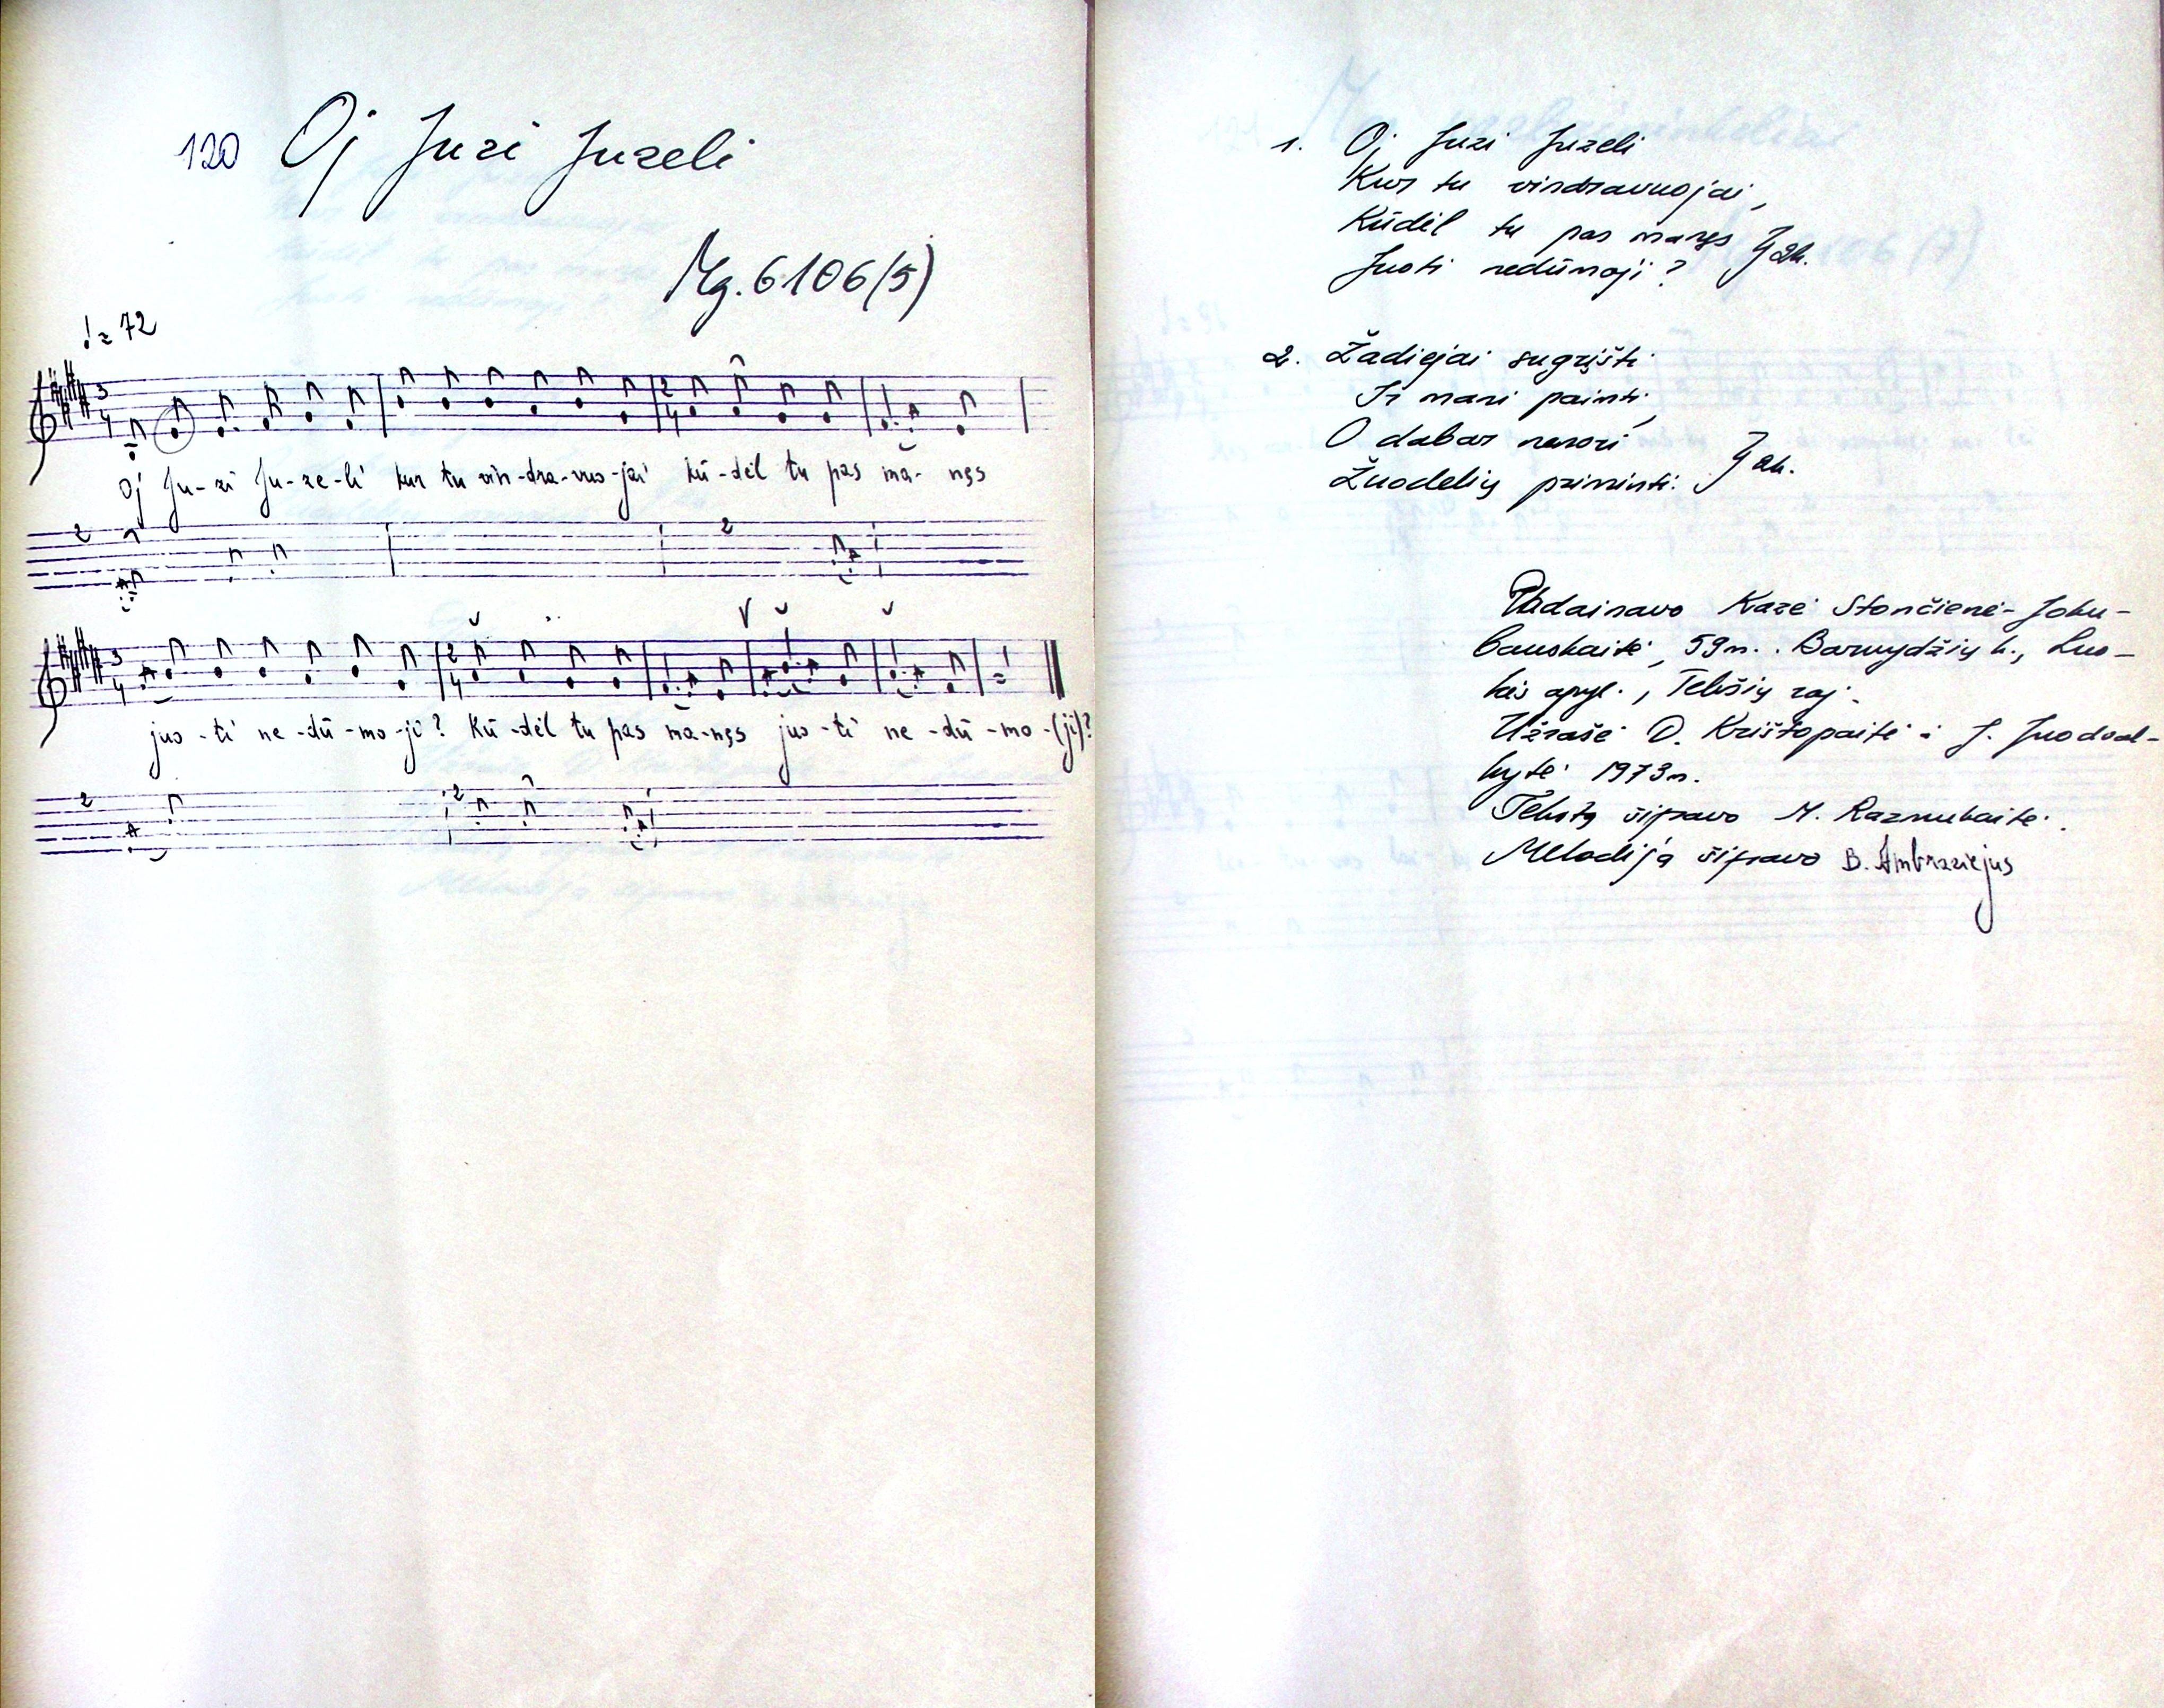 120 Oj Juzi Juzeli
Mg. 6106(5)
♩ = 72
3/4
2/4
Oj Ju-zi Ju-ze-li kur tu vin-dra-vuo-jai kū-dėl tu pas ma-nęs
2
2
3/4
2/4
juo-ti ne-dū-mo-ji? Kū-dėl tu pas ma-nęs juo-ti ne-dū-mo-(ji)?
2
2
1. Oj Juzi Juzeli
Kur tu vindravuojai,
Kūdėl tu pas manęs
Juoti nedūmoji? } 2k.
2. Žadiejai sugrįšti
Ir mani painti,
O dabar nenori
Žuodelių priminti. } 2k.
Padainavo Kazė Stončienė-Joku-
bauskaitė, 59 m. Barvydžių k., Luo-
kės apyl., Telšių raj.
Užrašė D. Krištopaitė i J. Juodval-
kytė 1973 m.
Tekstą šifravo M. Razmukaitė.
Melodiją šifravo B. Ambraziejus